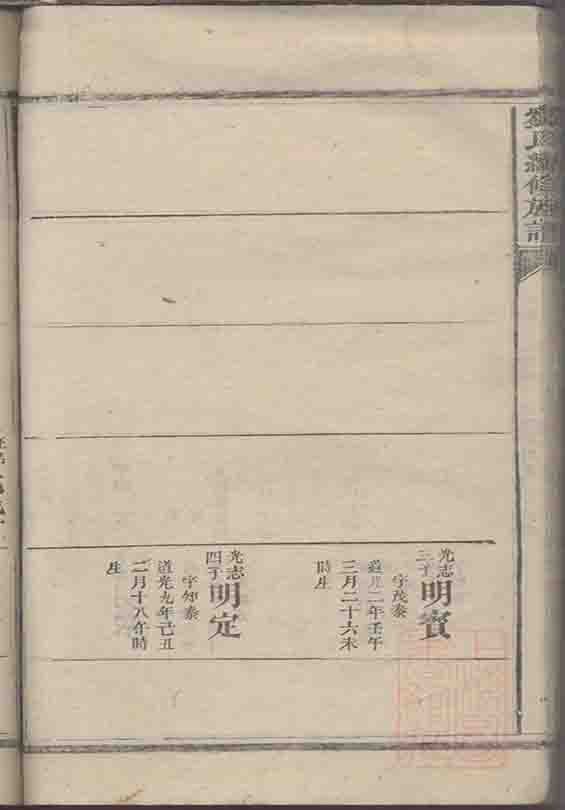 氏續修族譜
光志
三子
明賓
字茂泰
道光二年壬午
三月二十六未
時生
光志
四子
明定
字知泰
道光九年己丑
二月十八午時
生